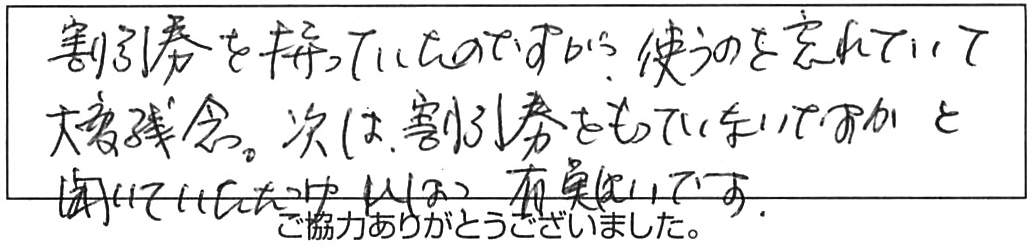 割引券を持っていたのですが、使うのを忘れていて
大変残念。次は、割引券をもっていないですかと
聞いていただければ 有難いです.
ご協力ありがとうございました。